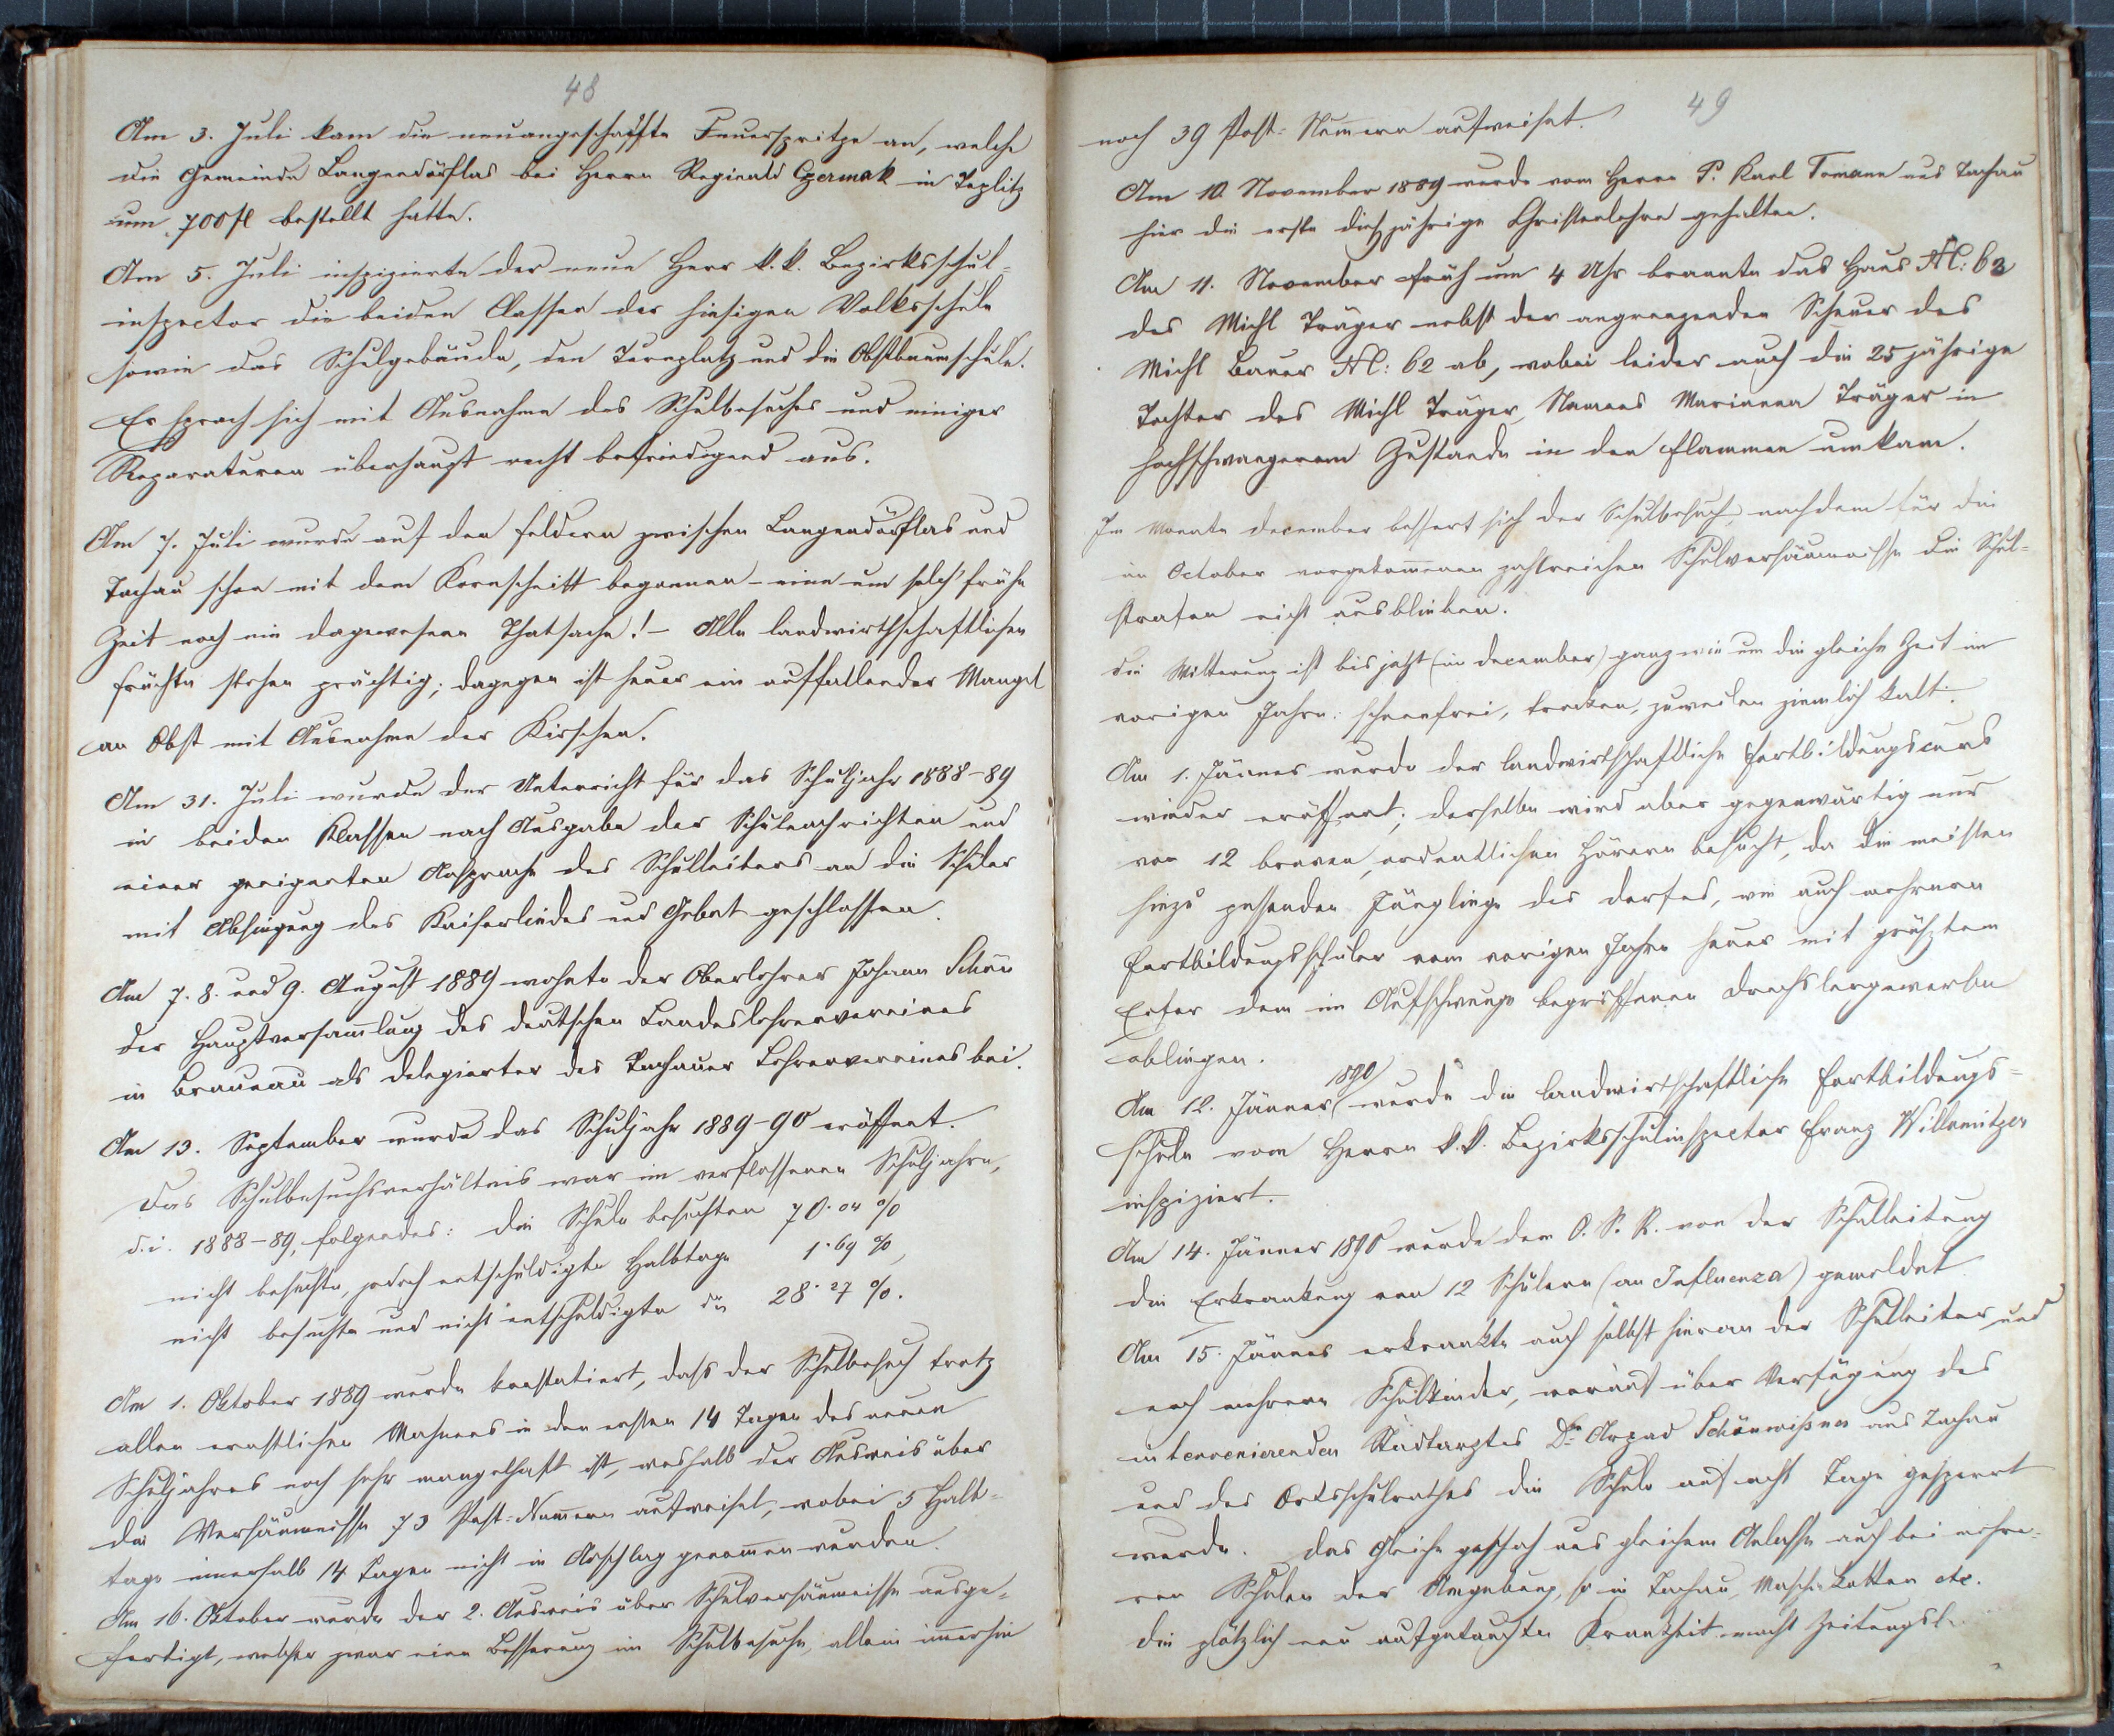 48
Am 3. Juli kam die neuangeschaffte Feuerspritze an, welche
die Gemeinde Langendörflas bei Herrn Reginald Czermak in Teplitz
um 700 fl bestellt hatte.
Am 5. Juli inspizierte der neue Herr k. k. Bezirksschul-
inspector die beiden Classen der hiesigen Volksschule
sowie das Schulgebäude, den Turnplatz und die Obstbaumschule.
Er sprach sich mit Ausnahme des Schulbesuches und einiger
Reparaturen überhaupt recht befriedigend aus.
Am 7. Juli wurde auf den Feldern zwischen Langendörflas und
Tachau schon mit dem Kornschnitt begonnen – eine um solch' frühe
Zeit noch nie dagewesene Thatsache! – Alle landwirthschaftlichen
Früchte stehen prächtig; dagegen ist heuer ein auffallender Mangel
an Obst mit Ausnahme der Kirschen.
Am 31. Juli wurde der Unterricht für das Schuljahr 1888–89
in beiden Klassen nach Ausgabe der Schulnachrichten und
einer geeigneten Ansprache des Schulleiters an die Schüler
mit Absingung des Kaiserliedes und Gebet geschlossen.
Am 7. 8. und 9. August 1889 wohnte der Oberlehrer Johann Schön
der Hauptversam̅lung des deutschen Landeslehrervereines
in Braunau als Delegierter des Tachauer Lehrervereines bei.
Am 13. September wurde das Schuljahr 1889–90 eröffnet.
Das Schulbesuchsverhältnis war im verflossenen Schuljahre,
d. i. 1888–89, folgendes: die Schule besuchten 70·04 %
nicht besuchte, jedoch entschuldigte Halbtage 1·69 %,
nicht besuchte und nicht entschuldigte do 28·27 %.
Am 1. Oktober 1889 wurde konstatiert, dass der Schulbesuch trotz
allen ernstlichen Mahnens in den ersten 14 Tagen des neuen
Schuljahres noch sehr mangelhaft ist, weshalb der Ausweis über
die Versäumnisse 73 Post-Num̅ern aufweiset, wobei 5 Halb-
tage innerhalb 14 Tagen nicht in Anschlag genom̅en wurden.
Am 16. Oktober wurde der 2. Ausweis über Schulversäumnisse ausge-
fertigt, welcher zwar eine Besserung im Schulbesuche, allein im̅erhin
49
noch 39 Post-Num̅ern aufweiset.
Am 10. November 1889 wurde vom Herrn P. Karl Tomann aus Tachau
hier die erste diesjährige Christenlehre gehalten.
Am 11. November früh um 4 Uhr brannte das Haus N: 63
des Michl Träger nebst der angrenzenden Scheuer des
Michl Bauer N: 62 ab, wobei leider auch die 25 jährige
Tochter des Michl Träger, Namens Marianna Träger in
hochschwangerem Zustande in den Flammen umkam.
Im Monate December bessert sich der Schulbesuch, nachdem für die
im October vorgekom̅enen zahlreichen Schulversäumnisse die Schul-
strafen nicht ausblieben.
Die Witterung ist bis jetzt (im December) ganz wie um die gleiche Zeit im
vorigen Jahre: schneefrei, trocken, zuweilen ziemlich kalt.
Am 1. Jänner wurde der landwirthschaftliche Fortbildungscurs
wieder eröffnet; derselbe wird aber gegenwärtig nur
von 12 braven, ordentlichen Hörern besucht, da die meisten
hiezu passenden Jünglinge des Dorfes, wie auch mehrere
Fortbildungsschüler vom vorigen Jahre heuer mit größtem
Eifer dem im Aufschwunge begriffenen Drechslergewerbe
obliegen.
Am 12. Jänner 1890 wurde die landwirtschaftliche Fortbildungs-
schule vom Herrn k. k. Bezirksschulinspector Franz Willomitzer
inspiziert.
Am 14. Jänner 1890 wurde dem O. S. R. von der Schulleitung
die Erkrankung von 12 Schülern (an Influenza) gemeldet.
Am 15. Jänner erkrankte auch selbst hieran der Schulleiter und
noch mehrere Schulkinder, worauf über Verfügung des
intervenierenden Stadtarztes Dr Arpad Schönwißner aus Tachau
und des Ortsschulrathes die Schule auf acht Tage gesperrt
wurde. Das Gleiche geschah aus gleichem Anlasse auch bei mehre-
ren Schulen der Umgebung, so in Tachau, Maschakotten etc.
Die plötzlich neu aufgetauchte Krankheit macht